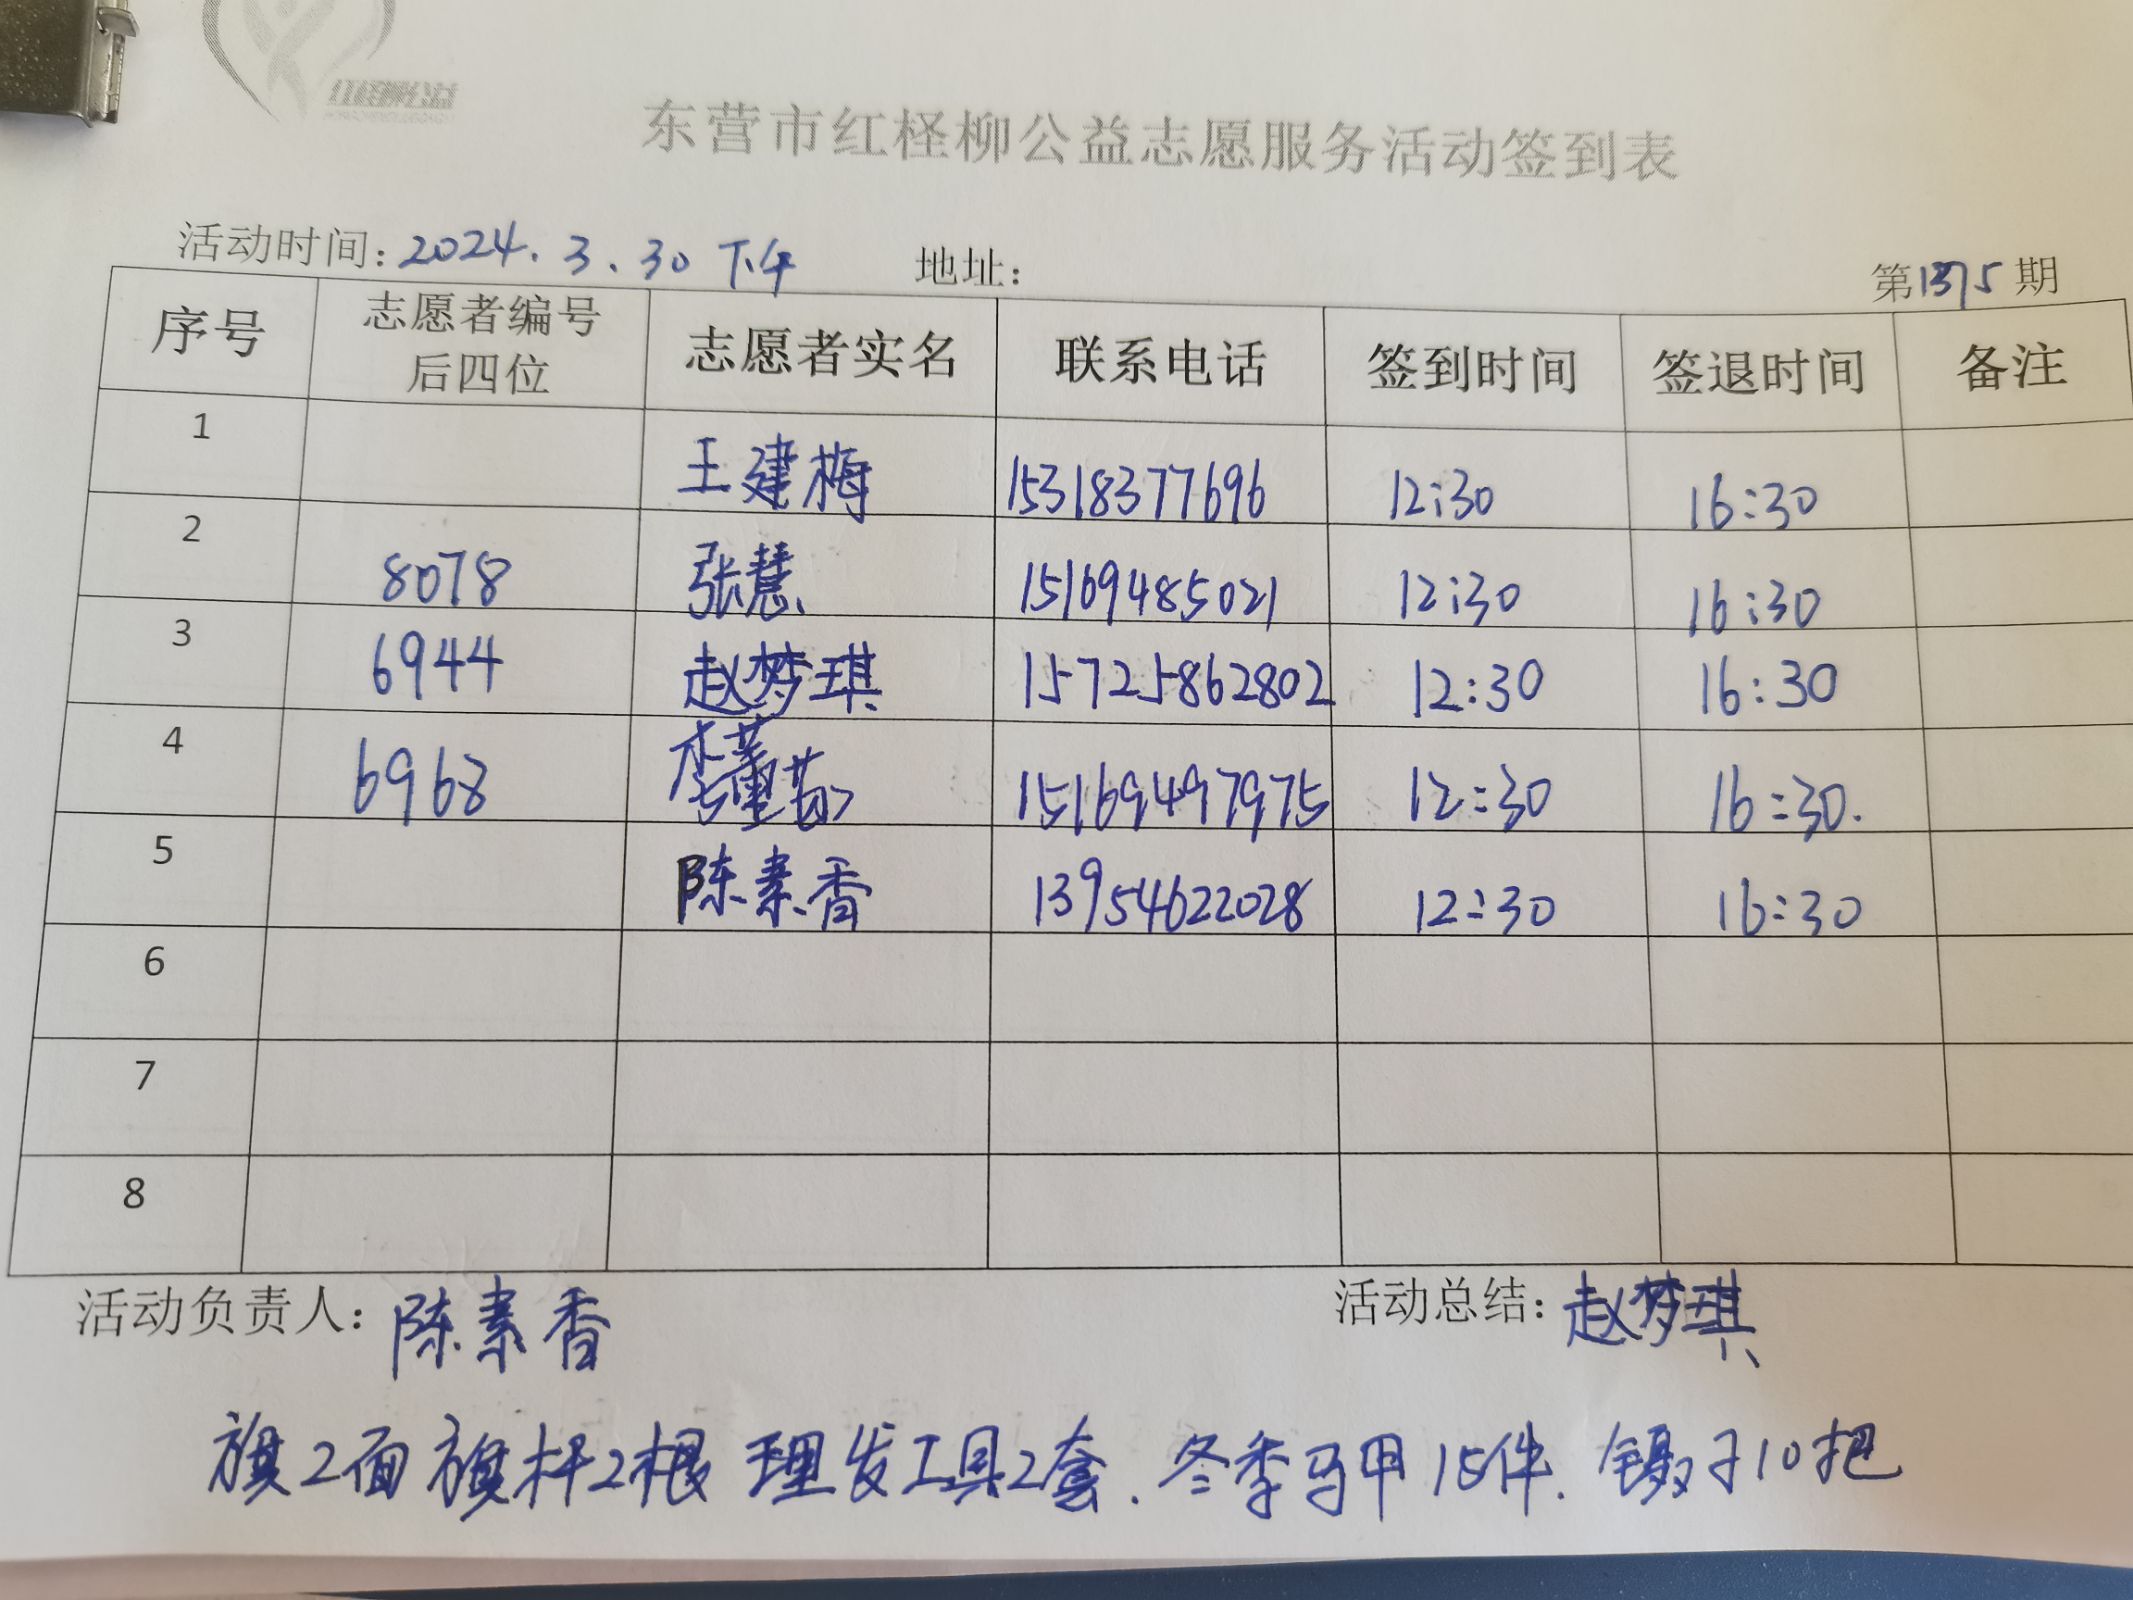 红柽柳公益
东营市红柽柳公益志愿服务活动签到表
活动时间：2024.3.30 下午 地址： 第1375期
序号 志愿者编号后四位 志愿者实名 联系电话 签到时间 签退时间 备注
1 王建梅 15318377696 12:30 16:30
2 8078 张慧 15169485021 12:30 16:30
3 6944 赵梦琪 15725862802 12:30 16:30
4 6968 李 15169497975 12:30 16:30.
5 陈素香 13954622028 12:30 16:30
6
7
8
活动负责人：陈素香 活动总结：赵梦琪
旗2面 旗杆2根 理发工具2套. 冬季马甲15件. 镊子10把